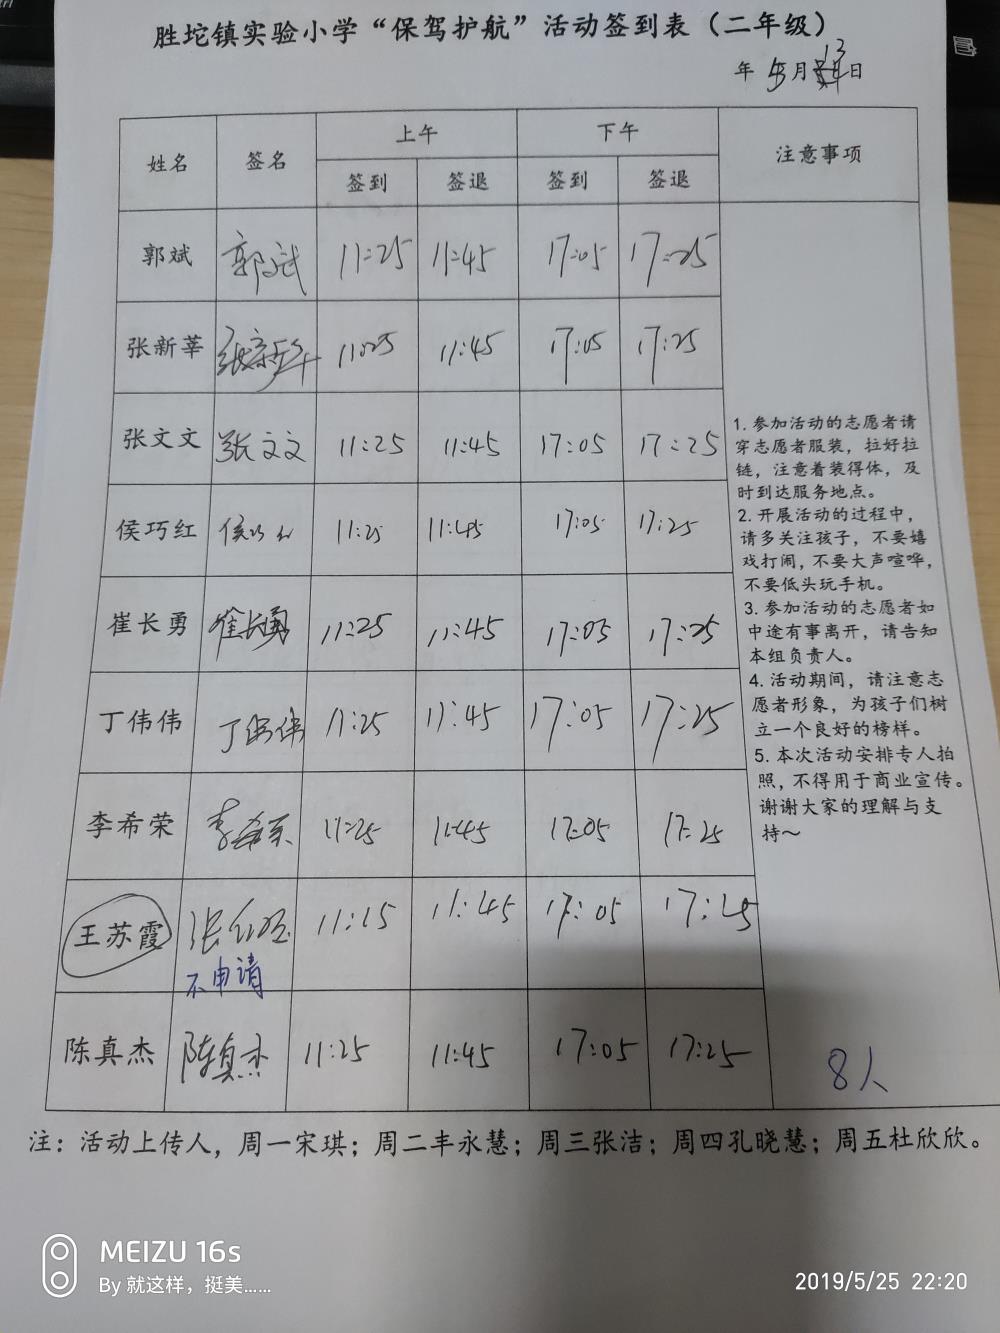 胜坨镇实验小学“保驾护航”活动签到表（二年级）
年 5月13日
姓名 签名 上午 下午 注意事项
签到 签退 签到 签退
郭斌 郭斌 11:25 11:45 17:05 17:25
张新莘 张新莘 11:25 11:45 17:05 17:25
张文文 张文文 11:25 11:45 17:05 17:25
侯巧红 侯巧红 11:25 11:45 17:05 17:25
崔长勇 崔长勇 11:25 11:45 17:05 17:25
丁伟伟 丁伟伟 11:25 11:45 17:05 17:25
李希荣 李希荣 11:25 11:45 17:05 17:25
王苏霞 张 11:25 11:45 17:05 17:25
不申请
陈真杰 陈真杰 11:25 11:45 17:05 17:25
1. 参加活动的志愿者请
穿志愿者服装，拉好拉
链，注意着装得体，及
时到达服务地点。
2. 开展活动的过程中，
请多关注孩子，不要嬉
戏打闹，不要大声喧哗，
不要低头玩手机。
3. 参加活动的志愿者如
中途有事离开，请告知
本组负责人。
4. 活动期间，请注意志
愿者形象，为孩子们树
立一个良好的榜样。
5. 本次活动安排专人拍
照，不得用于商业宣传。
谢谢大家的理解与支
持～
8人
注：活动上传人，周一宋琪；周二丰永慧；周三张洁；周四孔晓慧；周五杜欣欣。
MEIZU 16s
By 就这样，挺美......
2019/5/25 22:20